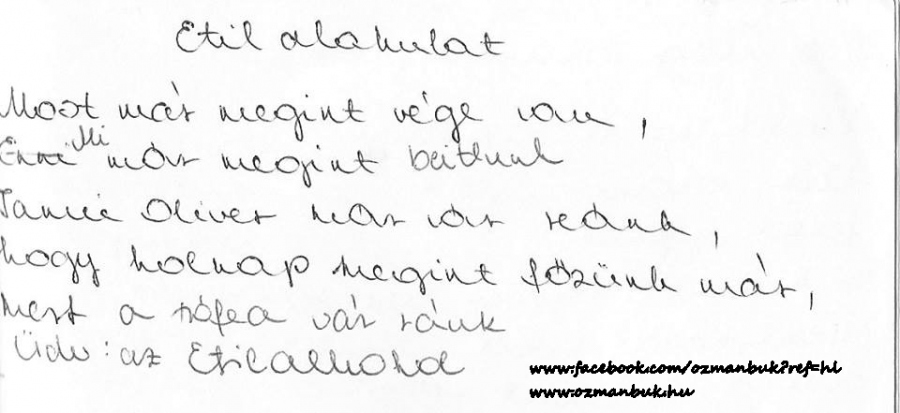 Etil alakulat
Most már megint vége van,
Enni Mi már megint beittunk
Jamie Oliver már vár reánk,
hogy holnap megint főzünk már,
mert a sófea vár ránk
Üdv: az Etilalkohol
www.facebook.com/ozmanbuk?ref=hl
www.ozmanbuk.hu